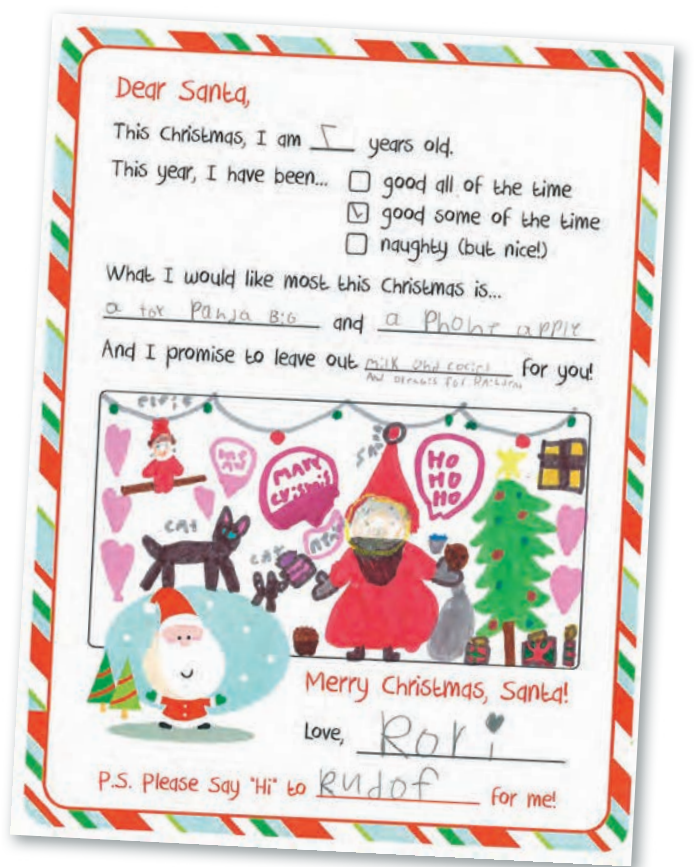 Dear Santa,
This Christmas, I am years old.
This year, I have been... good all of the time
good some of the time
naughty (but nice!)
What I would like most this Christmas is...
a toy Panda BiG and a Phone apple
And I promise to leave out milk and for you!
And for
elfie
MARY
HO
HO
HO
cat
cat
Merry Christmas, Santa!
Love, Rori
P.S. Please Say "Hi" to Rudof for me!